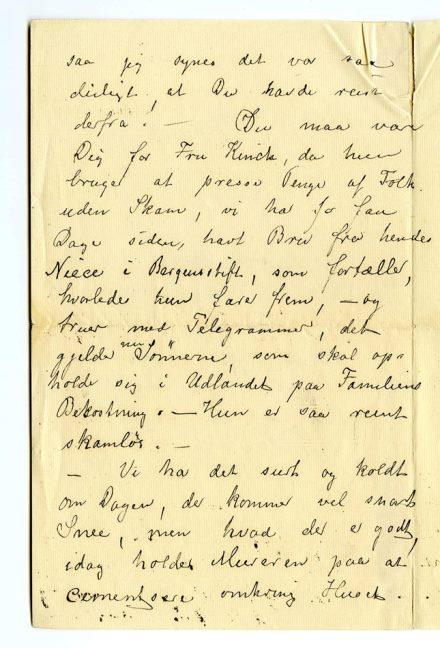 saa jeg synes det var saa
deiligt, at Du havde reist
derfra! — Du maa vare
Dig for Fru Kinck, da hun
bruger at presse Penge af Folk
uden Skam, vi ha for faa
Dage siden, havt Brev fra hendes
Niece i Bergensstift, som fortæller,
hvorledes hun farer frem, — og
truer med Telegrammer, det
gjelder nu Sönnerne, som skal op-
holde sig i Udlandet paa Familiens
Bekostning. — Hun er saa reint
skamlös. —
— Vi ha det surt og koldt
om Dagen, der kommer vel snart
Snee, men hvad der er godt,
idag holder Mureren paa at
cementsere omkring Huset.